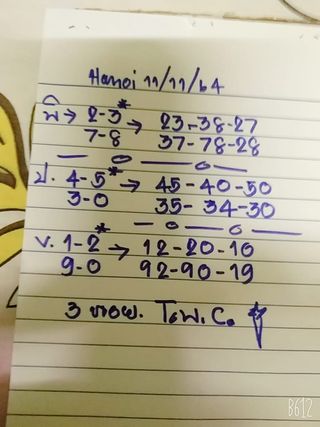 Hanoi 11/11/64
พิ → 2-3* → 23-38-27
7-8 37-78-28
ป. 4-5* → 45-40-50
3-0 35-34-30
v. 1-2* → 12-20-10
9-0 92-90-19
3 หอย. T.W.C.
B612